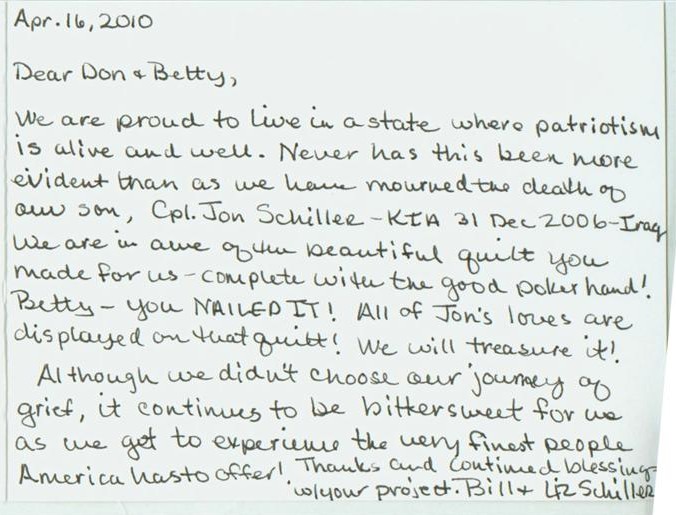 Apr. 16, 2010
Dear Don & Betty,
We are proud to live in a state where patriotism
is alive and well. Never has this been more
evident than as we have mourned the death of
our son, Cpl. Jon Schiller - KIA 31 Dec 2006 - Iraq
We are in awe of the beautiful quilt you
made for us - complete with the good poker hand!
Betty - you NAILED IT! All of Jon's loves are
displayed on that quilt! We will treasure it!
Although we didn't choose our journey of
grief, it continues to be bittersweet for us
as we get to experience the very finest people
America has to offer! Thanks and continued blessings
w/your project. Bill & Liz Schiller